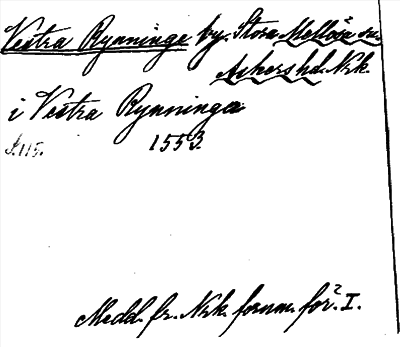 Vestra Rynninge by. Stora Mellösa sn.
Askers hd. Nrk.
i Vestra Rynninga
s. 115. 1553.
Medd. fr. Nrk. fornm. för. I.